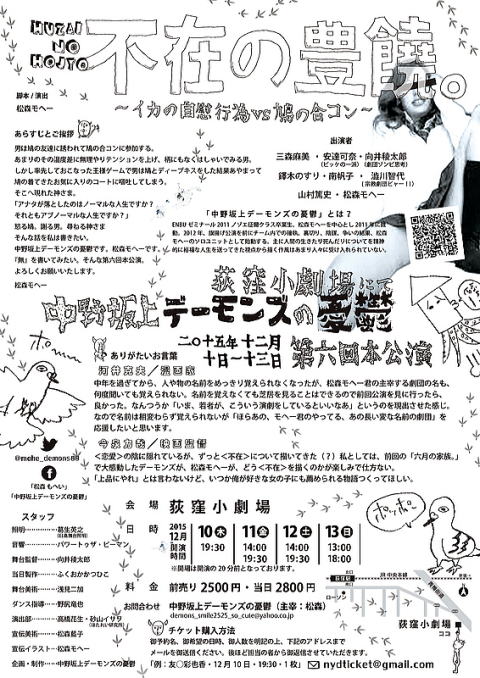 HUZAI
NO
HOJYO
不在の豊饒。
～イカの自慰行為vs鳩の合コン～
脚本/演出
松森モヘー
あらすじとご挨拶
男は鳩の友達に誘われて鳩の合コンに参加する。
あまりのその温度差に無理やりテンションを上げ、柄にもなくはしゃいでみる男。
しかし率先しておこなった王様ゲームで男は鳩とディープキスをした結果あやまって
鳩の着てきたお気に入りのコートに嘔吐してしまう。
そこへ現れた神さま。
「アナタが落としたのはノーマルな人生ですか?
それともアブノーマルな人生ですか?」
怒る鳩、謝る男、尋ねる神さま
そんな話を私は書きたい。
中野坂上デーモンズの憂鬱です。松森モヘーです。
「無」を書いてみたい。そんな第六回本公演。
よろしくお願いいたします。
松森モヘー
出演者
三森麻美・安達可奈・向井稜太郎
(ピッケの一派) (劇団ゾンビ思考)
鐸木のすり・南帆子・澁川智代
(宗教劇団ピャー!!)
山村篤史・松森モヘー
「中野坂上デーモンズの憂鬱」とは?
荻窪小劇場にて
中野坂上デーモンズの憂鬱
二〇十五年十二月
十日～十三日
第六回本公演
ありがたいお言葉
河井克夫/漫画家
中年を過ぎてから、人や物の名前をめっきり覚えられなくなったが、松森モヘー君の主宰する劇団の名も、
何度聞いても覚えられない。名前を覚えなくても芝居を見ることはできるので前回公演を見に行ったら、
良かった。なんつうか「いま、若者が、こういう演劇をしているといいなあ」というのを現出させた感じ。
なので名前は相変わらず覚えられないが「ほらあの、モヘー君のやってる、あの長い変な名前の劇団」を
応援したいと思います。
今泉力哉/映画監督
<恋愛>の陰に隠れているが、ずっと<不在>について描いてきた(?)私としては、前回の「六月の家族。」
で大感動したデーモンズが、松森モヘーが、どう<不在>を描くのかが楽しみで仕方ない。
「上品にやれ」とは言わないけど、いつか俺が好きな女の子にも薦められる物語つくってほしい。
ポー
ポッポー
@mohe_demons88
「松森 もへい」
「中野坂上デーモンズの憂鬱」
スタッフ
照明…葛生英之
音響…パワートゥザ・ピーマン
舞台監督…向井稜太郎
当日制作…ふくおかかつひこ
舞台美術…浅見二加
ダンス指導…野尻竜也
演出部…高橋花生・砂山イサヲ
宣伝美術…松森藍子
宣伝イラスト…松森モヘー
企画・制作…中野坂上デーモンズの憂鬱
会場 荻窪小劇場
日時 2015 12月 10木 11金 12土 13日
開演時間 19:30 14:00 14:00 13:00
19:30 19:30 18:00
※開場は開演の20分前となっております。
料金 前売り2500円・当日2800円
お問合わせ 中野坂上デーモンズの憂鬱(主宰:松森)
demons_smile2525_so_cute@yahoo.co.jp
チケット購入方法
御予約名、御希望の日時、御人数を明記の上、下記のアドレスまで
メールを御送信ください。後ほど担当の者から御返信させていただきます。
「例:友○彩也香・12月10日・19:30・1枚」 nydticket@gmail.com
荻窪駅
ローソン
荻窪小劇場
ココ